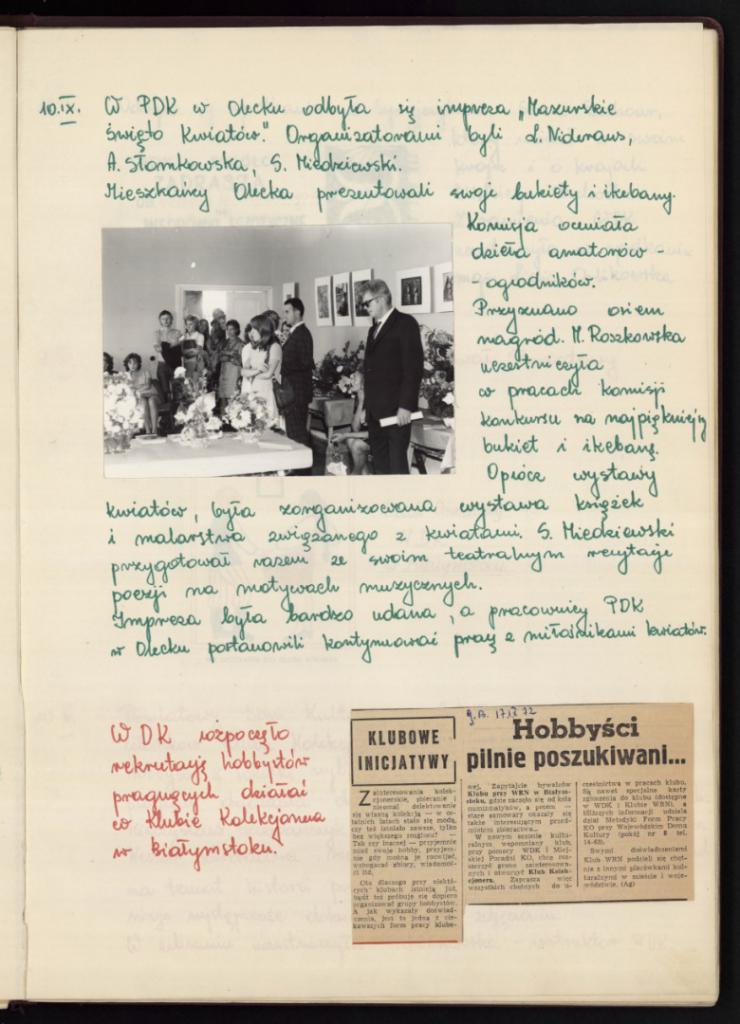 10.IX. W PDK w Olecku odbyła się impreza „Mazurskie
święto kwiatów." Organizatorami byli L. Nideraus,
A. Słomkowska, S. Miedziewski.
Mieszkańcy Olecka prezentowali swoje bukiety i ikebany.
Komisja oceniała
dzieła amatorów -
- ogrodników.
Przyznano osiem
nagród. M. Roszkowska
uczestniczyła
w pracach komisji
konkursu na najpiękniejszy
bukiet i ikebanę.
Oprócz wystawy
kwiatów, była zorganizowana wystawa książek
i malarstwa związanego z kwiatami. S. Miedziewski
przygotował razem ze swoim teatralnym recytacje
poezji na motywach muzycznych.
Impreza była bardzo udana, a pracownicy PDK
w Olecku postanowili kontynuować pracę z miłośnikami kwiatów.
W DK rozpoczęto
rekrutację hobbystów
pragnących działać
w Klubie Kolekcjonera
w Białymstoku.
KLUBOWE
INICJATYWY
Hobbyści
pilnie poszukiwani...
Zainteresowania kolek-
cjonerskie, zbieranie i
nieomal delektowanie
się własną kolekcją — w o-
statnich latach stało się modą,
czy też istniało zawsze, tylko
bez większego rozgłosu? —
Tak czy inaczej — przyjemnie
mieć swoje hobby, przyjem-
nie gdy można je rozwijać,
wzbogacać zbiory, wiadomo-
ści itd.
Ota dlaczego przy niektó-
rych klubach istnieją już,
bądź też próbuje się dopiero
organizować grupy hobbystów.
A jak wykazały doświad-
czenia, jest to jedna z cie-
kawszych form pracy klubo-
wej. Zapytajcie bywalców
Klubu przy WRN w Białym-
stoku, gdzie zaczęło się od koła
numizmatyków, a potem —
stare samowary okazały się
także interesującym przed-
miotem zbieractwa..
W nowym sezonie kultu-
ralnym wspomniany klub,
przy pomocy WDK i Miej-
skiej Poradni KO, chce roz-
szerzyć grono zainteresowa-
nych i otworzyć Klub Kolek-
cjonera. Zaprasza więc
wszystkich chętnych do u-
czestnictwa w pracach klubu.
Są nawet specjalne karty
zgłoszenia do klubu (dostępne
w WDK i Klubie WRN), a
bliższych informacji udziela
dział Metodyki Form Pracy
KO przy Wojewódzkim Domu
Kultury (pokój nr 8 tel.
Swymi doświadczeniami
Klub WRN podzieli się chęt-
nie z innymi placówkami kul-
turalnymi w mieście i woje-
wództwie. (Ag)